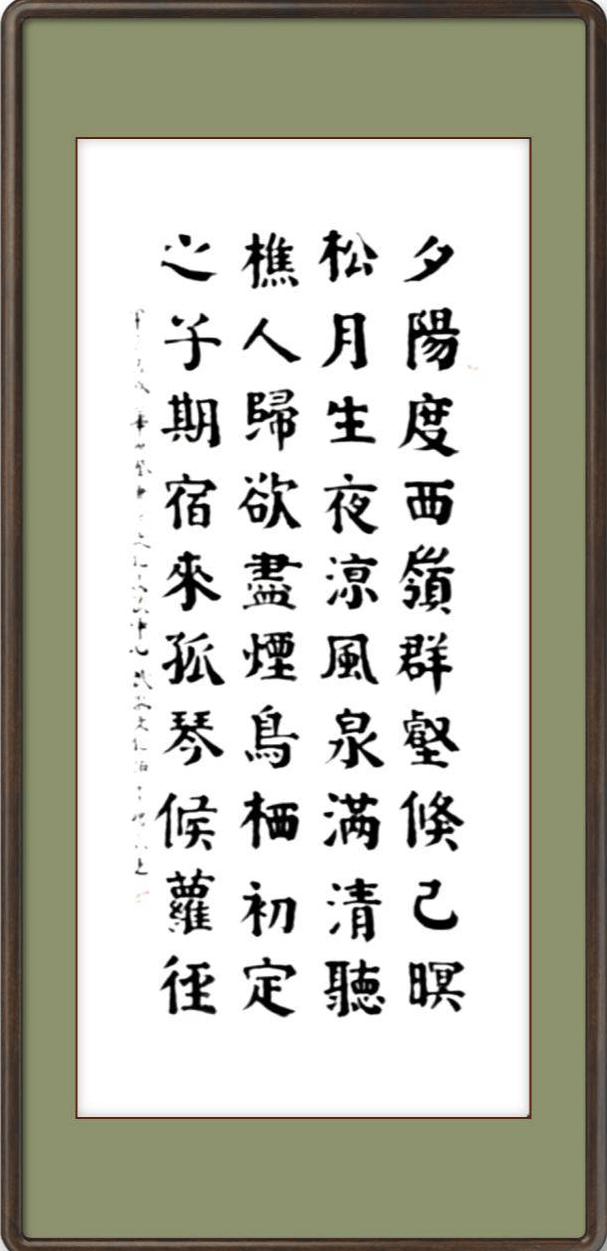 夕陽度西嶺群壑倏己暝
松月生夜涼風泉滿清聽
樵人歸欲盡煙鳥栖初定
之子期宿來孤琴候蘿徑